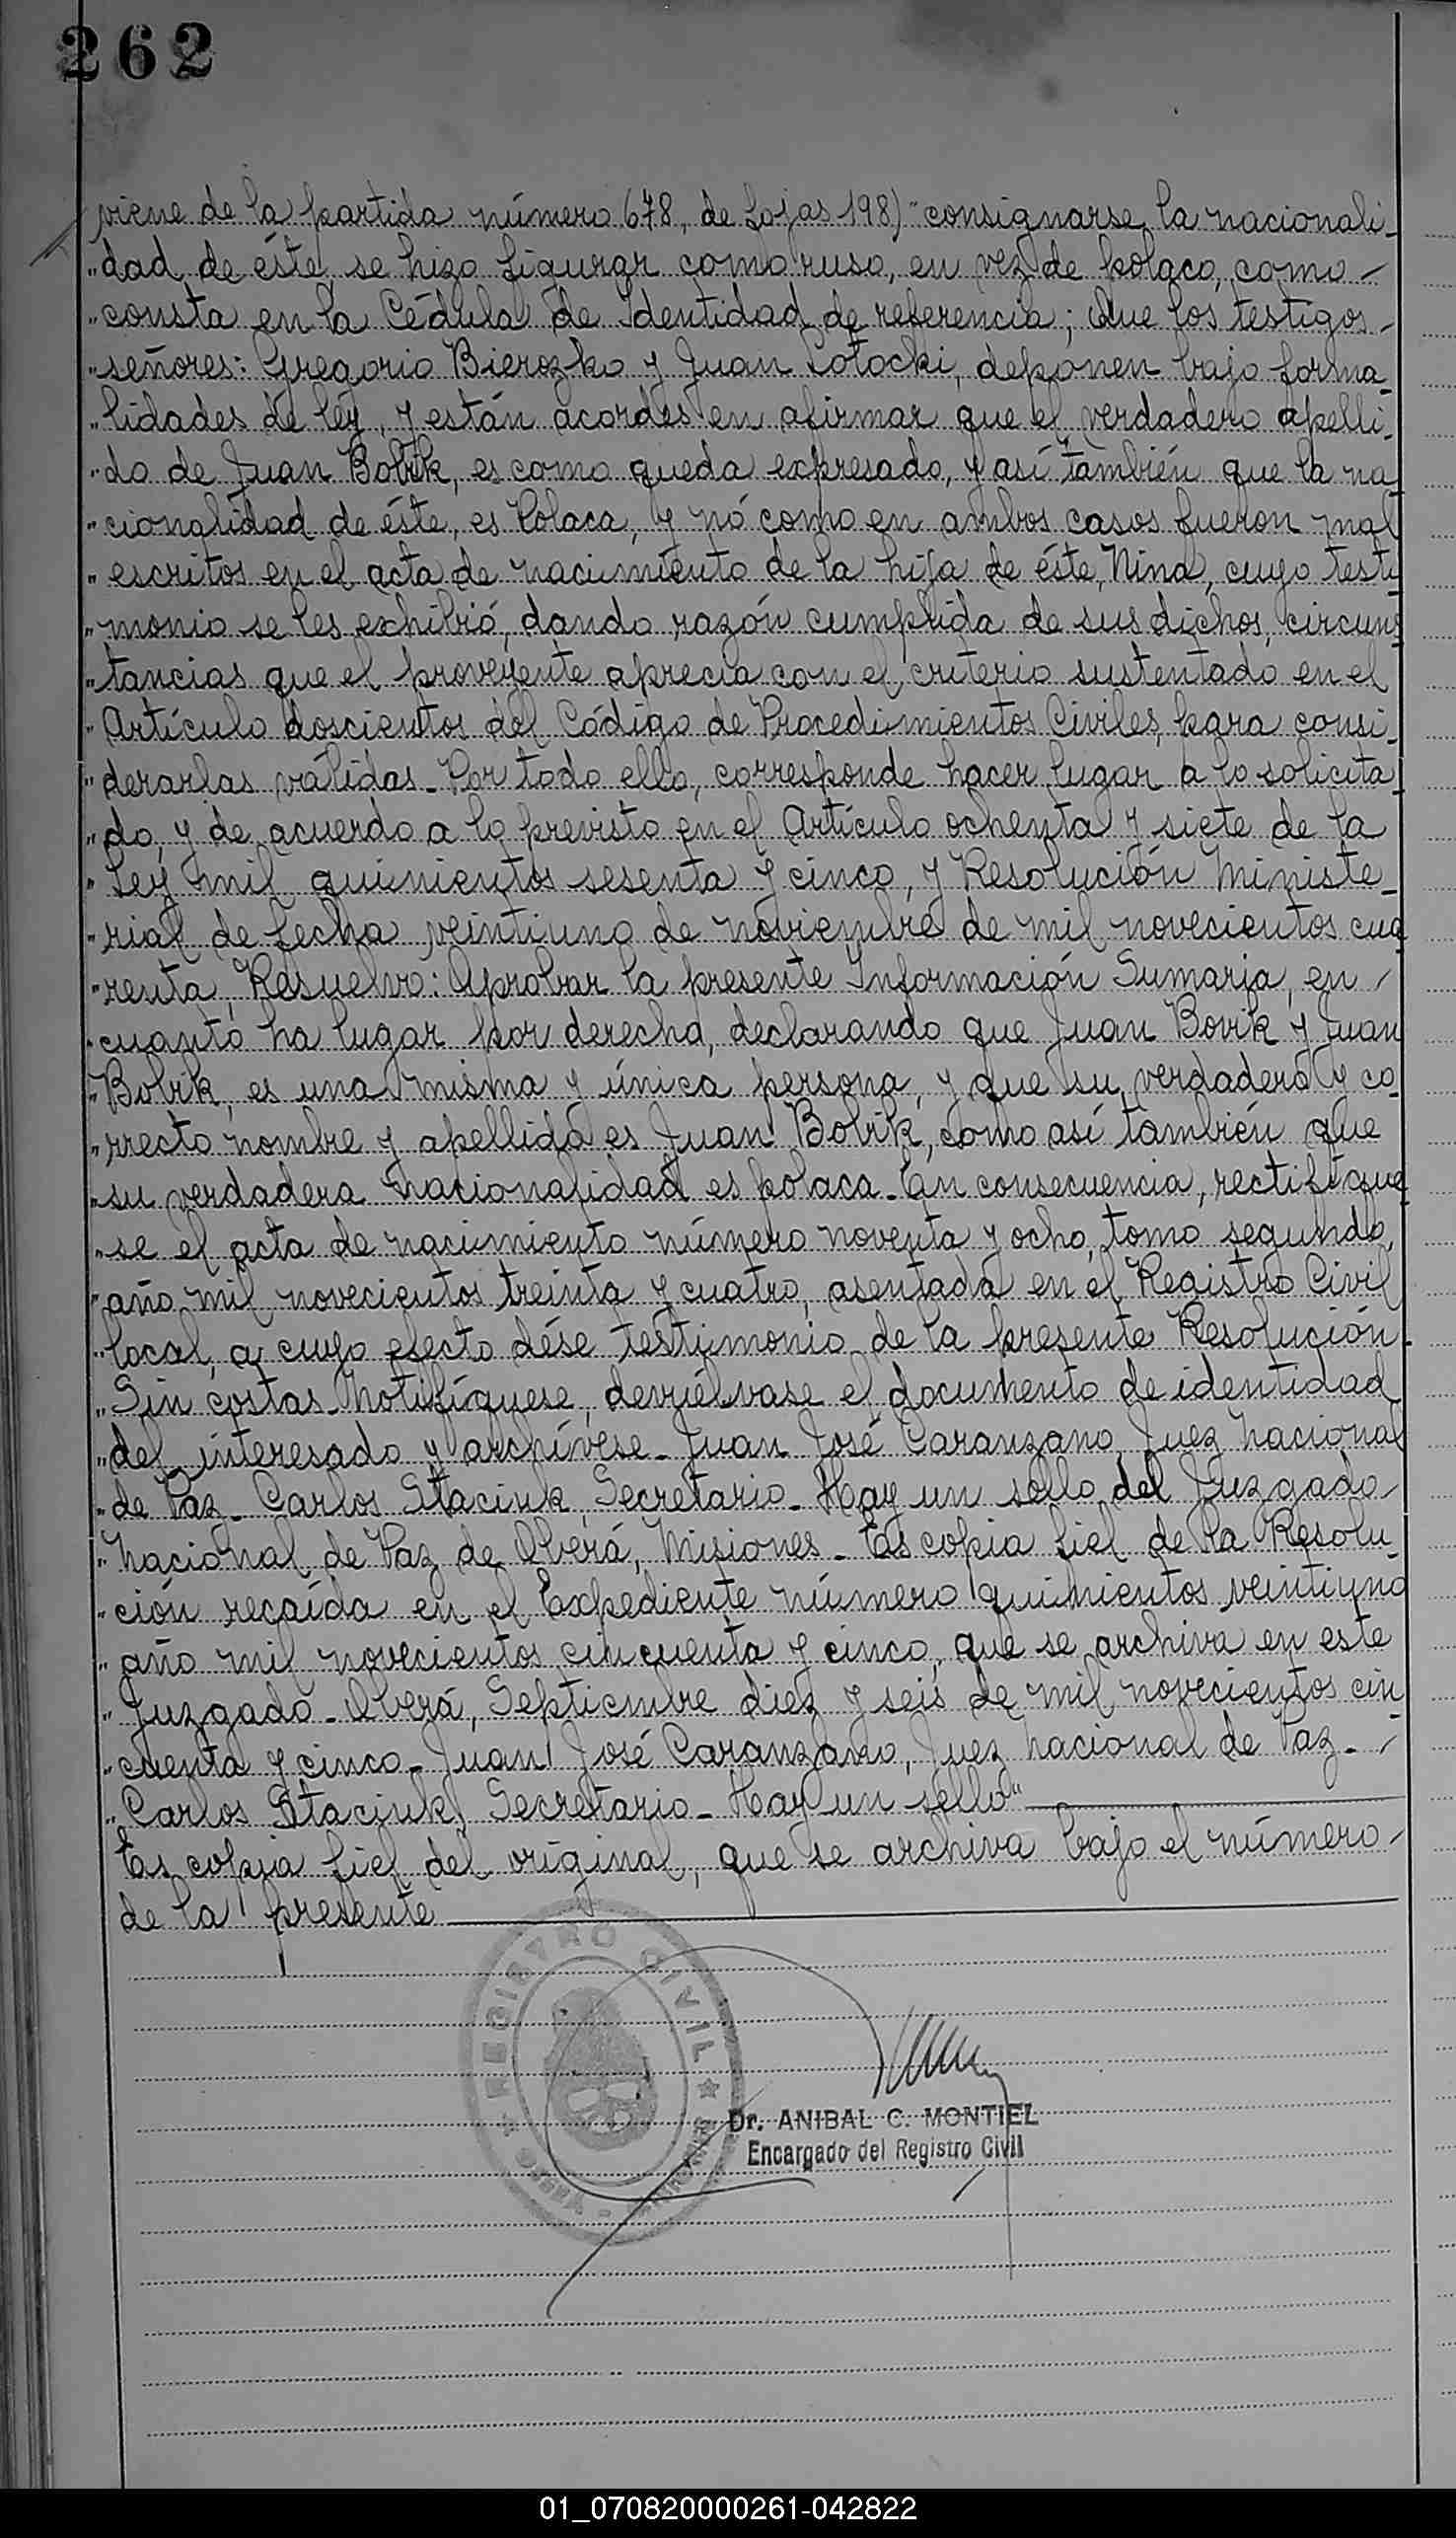 262
viene de la partida número 678, de fojas 198) "consignarse la nacionali-
"dad de éste, se hizo figurar como ruso, en vez de polaco, como -
"consta en la Cédula de Identidad de referencia; Que los testigos -
"señores: Gregorio Bierozko y Juan Potocki, deponen bajo forma-
"lidades de ley, y están acordes en afirmar que el verdadero apelli-
"do de Juan Bobik, es como queda expresado, y así también que la na
"cionalidad de éste, es Polaca, y nó como en ambos casos fueron mal
"escritos en el acta de nacimiento de la hija de éste, Nina, cuyo testi
"monio se les exhibió, dando razón cumplida de sus dichos, circuns
"tancias que el proveyente aprecia con el criterio sustentado en el
"Artículo doscientos del Código de Procedimientos Civiles, para consi-
"derarlas válidas_ Por todo ello, corresponde hacer lugar a lo solicita
"do, y de acuerdo a lo previsto en el Artículo ochenta y siete de la
"Ley mil quinientos sesenta y cinco, y Resolución Ministe-
"rial de fecha veintiuno de noviembre de mil novecientos cua
"renta, Resuelvo: Aprobar la presente Información Sumaria, en -
"cuanto ha lugar por derecho, declarando que Juan Bovik y Juan
"Bobik, es una misma y única persona, y que su verdadero y co-
"rrecto nombre y apellido es Juan Bobik, como así también que
"su verdadera nacionalidad es polaca_ En consecuencia, rectifíque
"se el acta de nacimiento número noventa y ocho, tomo segundo,
"año mil novecientos treinta y cuatro, asentada en el Registro Civil
"local, a cuyo efecto dése testimonio de la presente Resolución.
"Sin costas_ Notifíquese, devuélvase el documento de identidad
"del interesado y archívese_ Juan José Caranzano, Juez Nacional
"de Paz_ Carlos Staciuk, Secretario_ Hay un sello del Juzgado
"Nacional de Paz de Oberá, Misiones_ Es copia fiel de la Resolu-
"ción recaída en el Expediente número quinientos veintiuno
"año mil novecientos cincuenta y cinco, que se archiva en este
"Juzgado_ Oberá, Septiembre diez y seis de mil novecientos cin
"cuenta y cinco_ Juan José Caranzano, Juez Nacional de Paz_ -
"Carlos Staciuk, Secretario_ Hay un sello"
Es copia fiel del original, que se archiva bajo el número -
de la presente
REGISTRO CIVIL
OBERA - MISIONES
Dr. ANIBAL C. MONTIEL
Encargado del Registro Civil
01_070820000261-042822